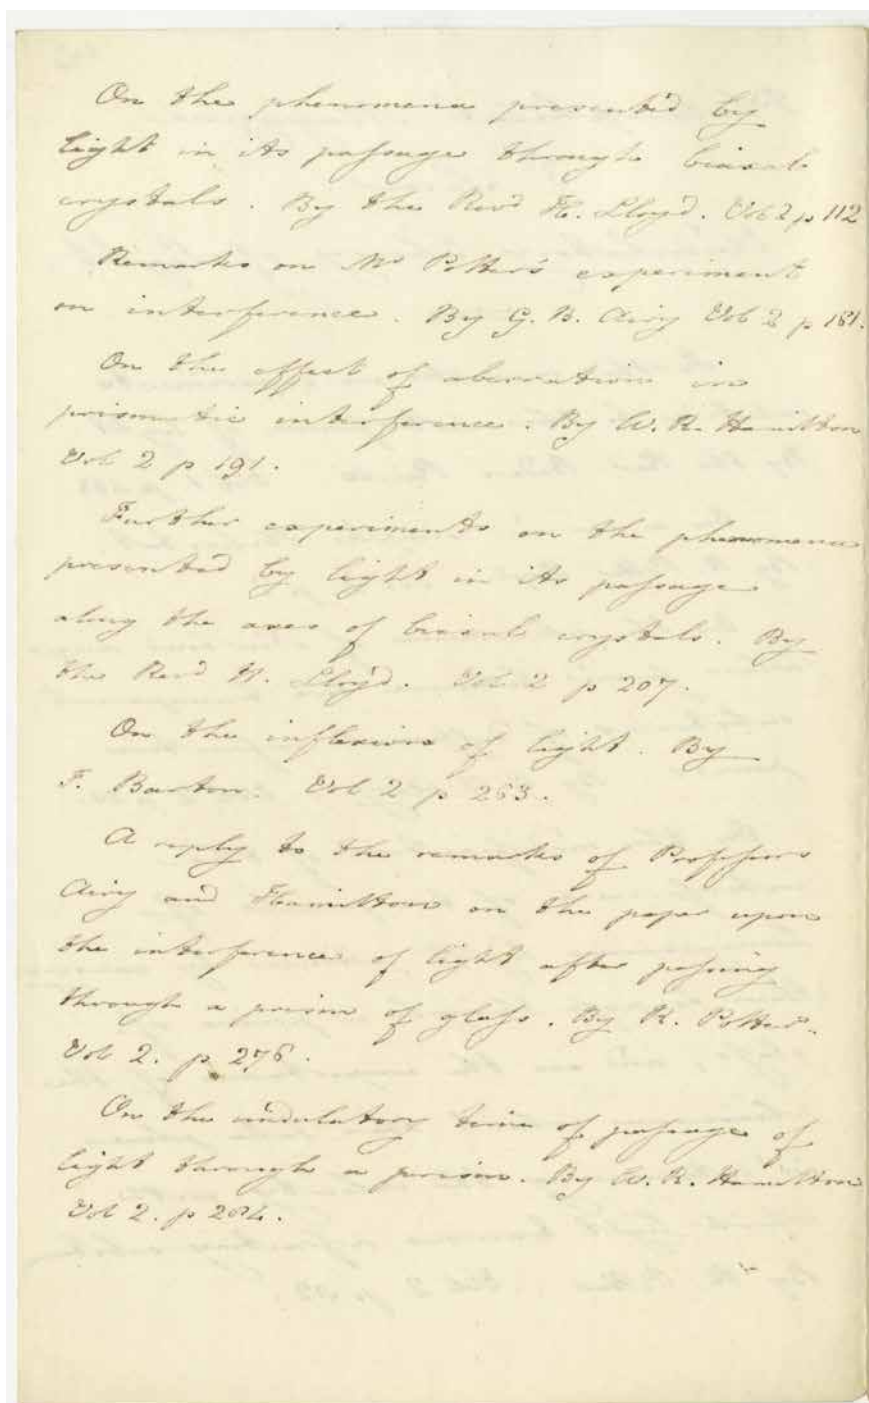 On the phenomena presented by
light in its passage through biaxal
crystals. By the Revd H. Lloyd. Vol 2 p 112
Remarks on Mr Potter's experiment
on interference. By G. B. Airy Vol 2 p 161.
On the effect of aberration in
prismatic interference. By W. R. Hamilton
Vol 2 p 191.
Further experiments on the phenomena
presented by light in its passage
along the axes of biaxal crystals. By
the Revd H. Lloyd. Vol 2 p 207.
On the inflexion of light. By
J. Barton. Vol 2 p 263.
A reply to the remarks of Professors
Airy and Hamilton on the paper upon
the interference of light after passing
through a prism of glass. By R. Potter.
Vol 2. p 276.
On the undulatory time of passage of
light through a prism. By W. R. Hamilton
Vol 2. p 284.